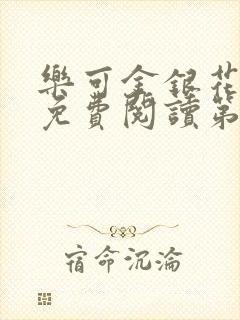 樂可金銀花
免費閱讀第
宿命沉淪